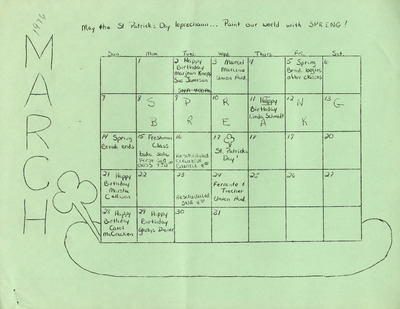 1976
May the St. Patrick's Day leprechaun... Paint our world with SPRING!
MARCH
Sun. Mon. Tues. Wed. Thurs. Fri. Sat.
1
2 Happy
Birthday
Marjean Knapp
Sue Jamison
3 Marcel
Marceau
Union Aud.
4
5 Spring
Break begins
after classes
6
7
8 S
B
9 P
R
10 R
E
11 Happy
Birthday
Linda Schmidt
A
12 N
K
13 G
14 Spring
Break ends
15 Freshman
Class
bake sale
16
Rescheduled
Executive
Council
17
St. Patrick's
Day!
18
19
20
21 Happy
Birthday
Marsha
22
23
Rescheduled
24
Ferrante &
Teicher
Union Aud.
25
26
27
28 Happy
Birthday
Carol
McCracken
29 Happy
Birthday
Gladys
30
31